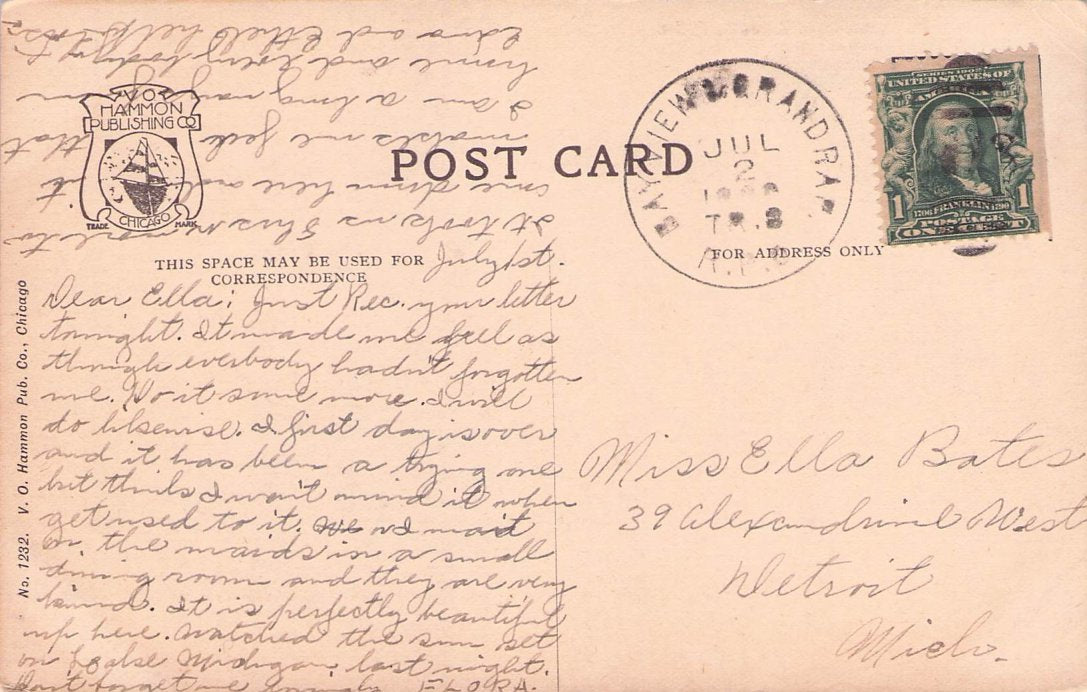 V.O.
HAMMON
PUBLISHING CO
TRADE MARK
CHICAGO
POST CARD
THIS SPACE MAY BE USED FOR
CORRESPONDENCE
FOR ADDRESS ONLY
No. 1232. V. O. Hammon Pub. Co., Chicago
BAY VIEW & GRAND RAP.
JUL
2
TR. 3
R.P.O
SERIES 1902
UNITED STATES OF
AMERICA
1706 FRANKLIN 1790
POSTAGE
1 ONE CENT 1
July 1st.
Dear Ella; Just Rec. your letter
tonight. It made me feel as
though everbody hadn't forgotten
me. Do it some more. I will
do likewise. I first day is over
and it has been a trying one
but think I won't mind it when
get used to it. I wait
on the maids in a small
dining room and they are very
kind. It is perfectly beautiful
up here. Watched the sun set
on Lake Michigan last night.
Don't forget me FLORA.
It took us 5 hrs more to
come down here and it
makes me feel that
I am a long way from
home and every body
Edna and Ethel help
Miss Ella Bates
39 Alexandrine West
Detroit
Mich.